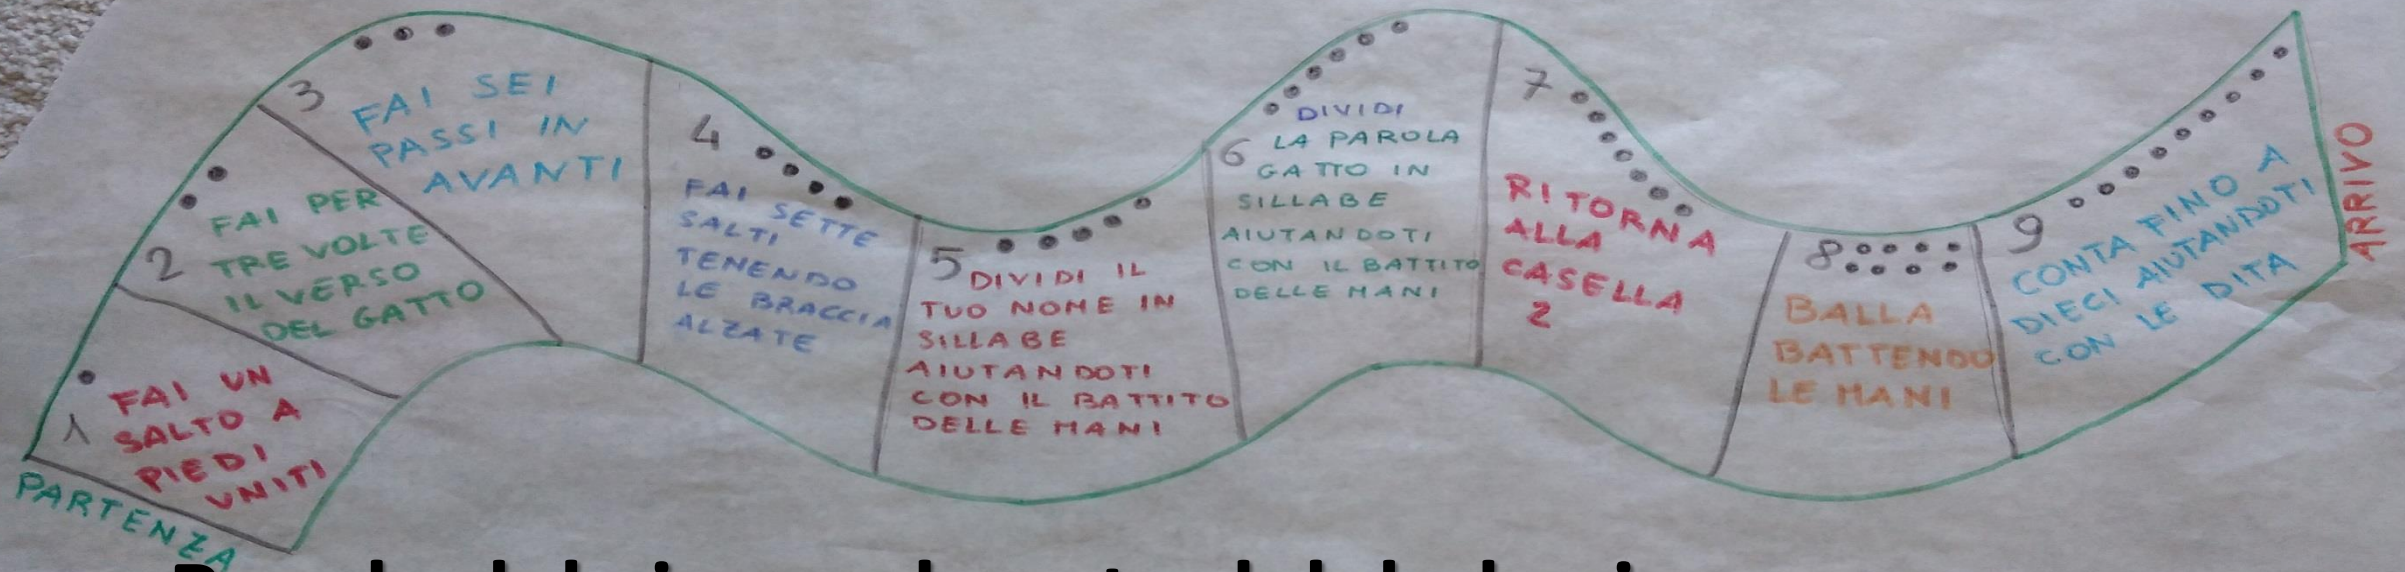 PARTENZA
1
FAI UN
SALTO A
PIEDI
UNITI
2
FAI PER
TRE VOLTE
IL VERSO
DEL GATTO
3
FAI SEI
PASSI IN
AVANTI
4
FAI SETTE
SALTI
TENENDO
LE BRACCIA
ALZATE
5
DIVIDI IL
TUO NOME IN
SILLABE
AIUTANDOTI
CON IL BATTITO
DELLE MANI
6
DIVIDI
LA PAROLA
GATTO IN
SILLABE
AIUTANDOTI
CON IL BATTITO
DELLE MANI
7
RITORNA
ALLA
CASELLA
2
8
BALLA
BATTENDO
LE MANI
9
CONTA FINO A
DIECI AIUTANDOTI
CON LE DITA
ARRIVO